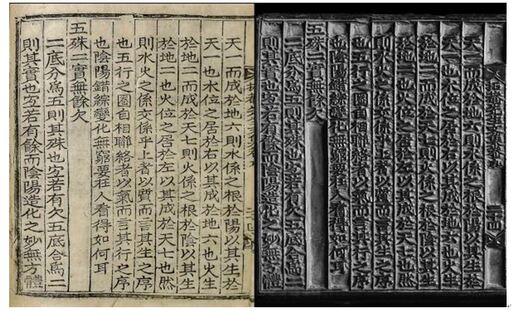 天一而成於地六則水係之根於陽以其生於
天一也水位之居於右以其成於地六也火生
於地二而成於天七則火係之根於陰以其生
於地二也火位之居於左以其成於天七也然
則水火之係交係乎上者以質而言其生之序
也五行之圖自相聯絡者以氣而言其行之序
也陰陽錯綜變化無窮要在人看得如何耳
五殊二實無餘欠
二底分爲五則其殊也字若有欠五底合爲二
則其實也字若有餘而陰陽造化之妙無方體
天一而成於地六則水係之根於陽以其生於
天一也水位之居於右以其成於地六也火生
於地二而成於天七則火係之根於陰以其生
於地二也火位之居於左以其成於天七也然
則水火之係交係乎上者以質而言其生之序
也五行之圖自相聯絡者以氣而言其行之序
也陰陽錯綜變化無窮要在人看得如何耳
五殊二實無餘欠
二底分爲五則其殊也字若有欠五底合爲二
則其實也字若有餘而陰陽造化之妙無方體